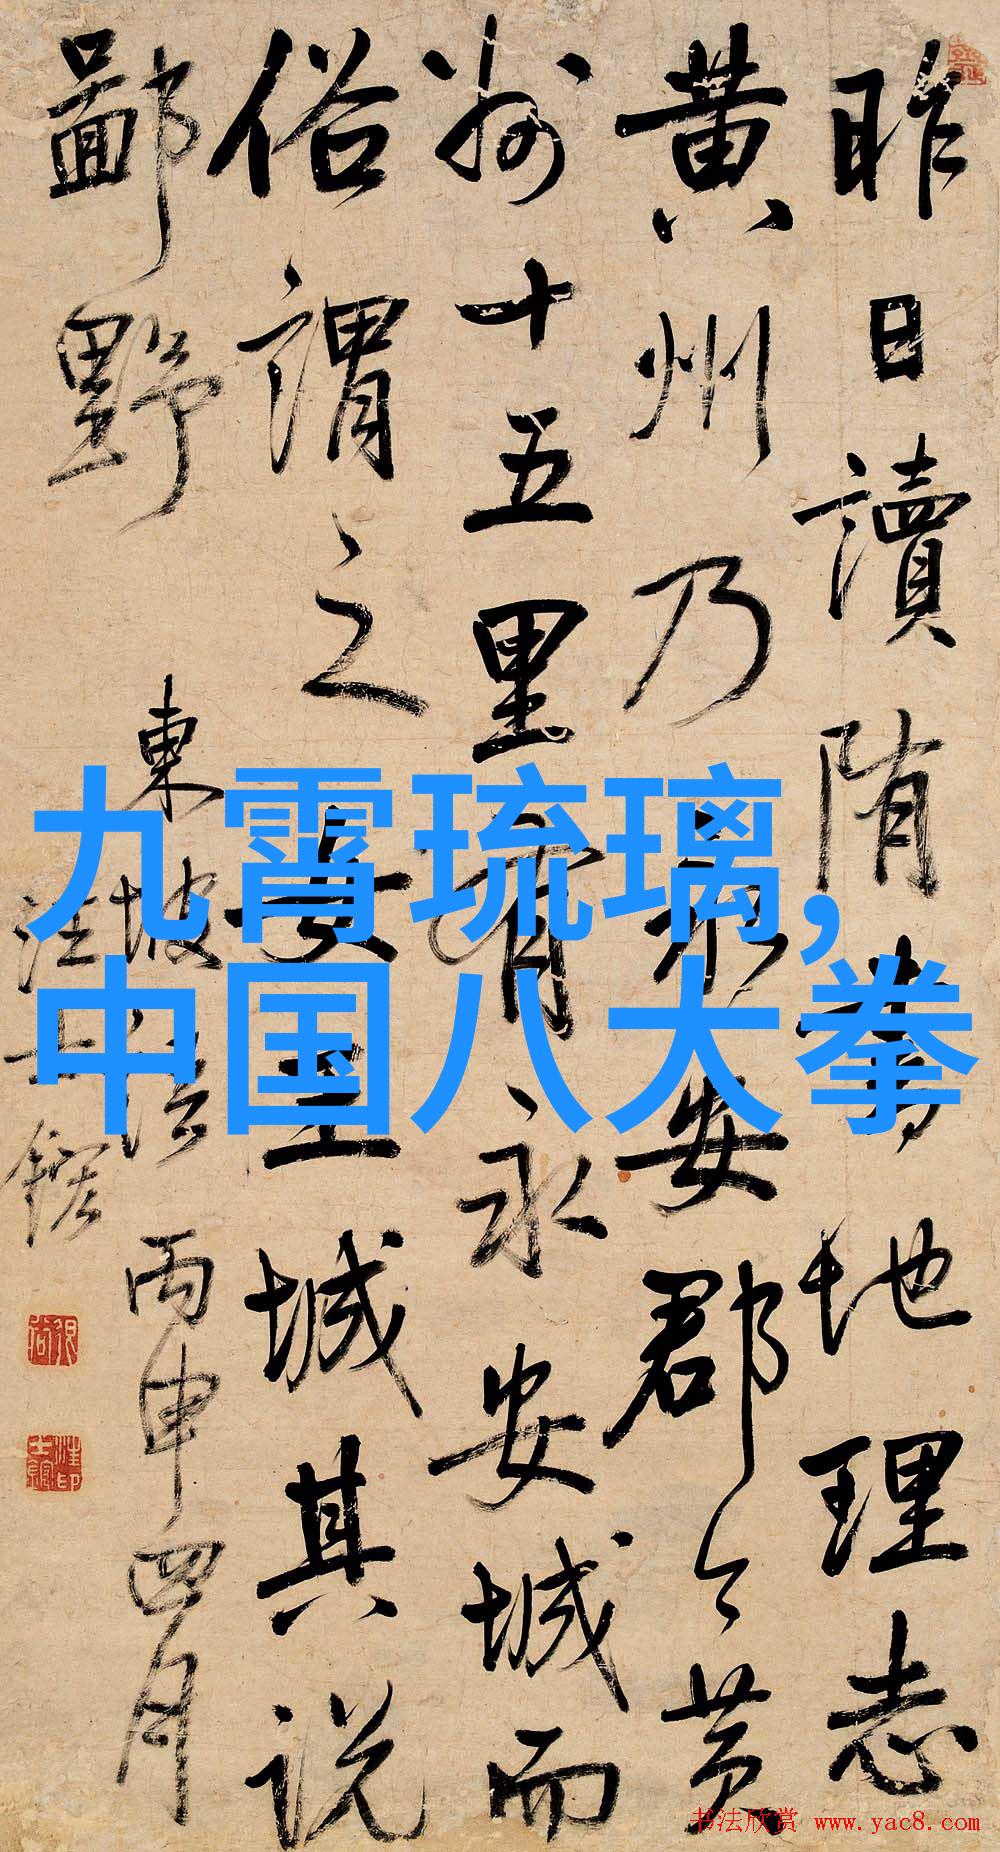 九霄琉璃,
中国八大拳
昨日讀隋書地理志
黄州乃永安郡今黄
州十五里有永安城而
俗謂之女王城其説
鄙野
東坡 丙申四月
汪士鋐
书法欣赏 www.yac8.com